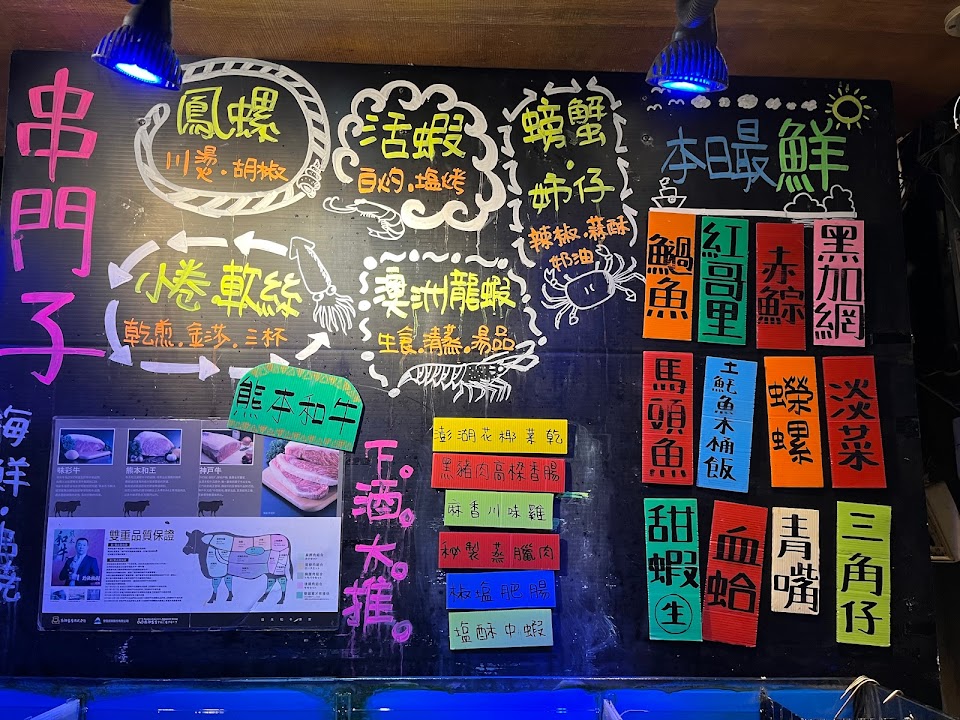 串門子
海鮮.串燒
鳳螺
川燙.胡椒
活蝦
白灼.塩烤
螃蟹.
姊仔
辣椒.蒜酥
奶油
本日最鮮
小卷.軟絲
乾煎.金莎.三杯
澳洲龍蝦
生食.清蒸.湯品
熊本和牛
味彩牛
熊本和王
神戸牛
雙重品質保證
和牛
下。酒。大。推。
澎湖花椰菜乾
黑豬肉高樑香腸
麻香川味雞
秘製蒸臘肉
椒塩肥腸
塩酥中蝦
鯛魚
紅哥里
赤鯮
黑加網
馬頭魚
土魠魚木桶飯
蠑螺
淡菜
甜蝦生
血蛤
青嘴
三角仔